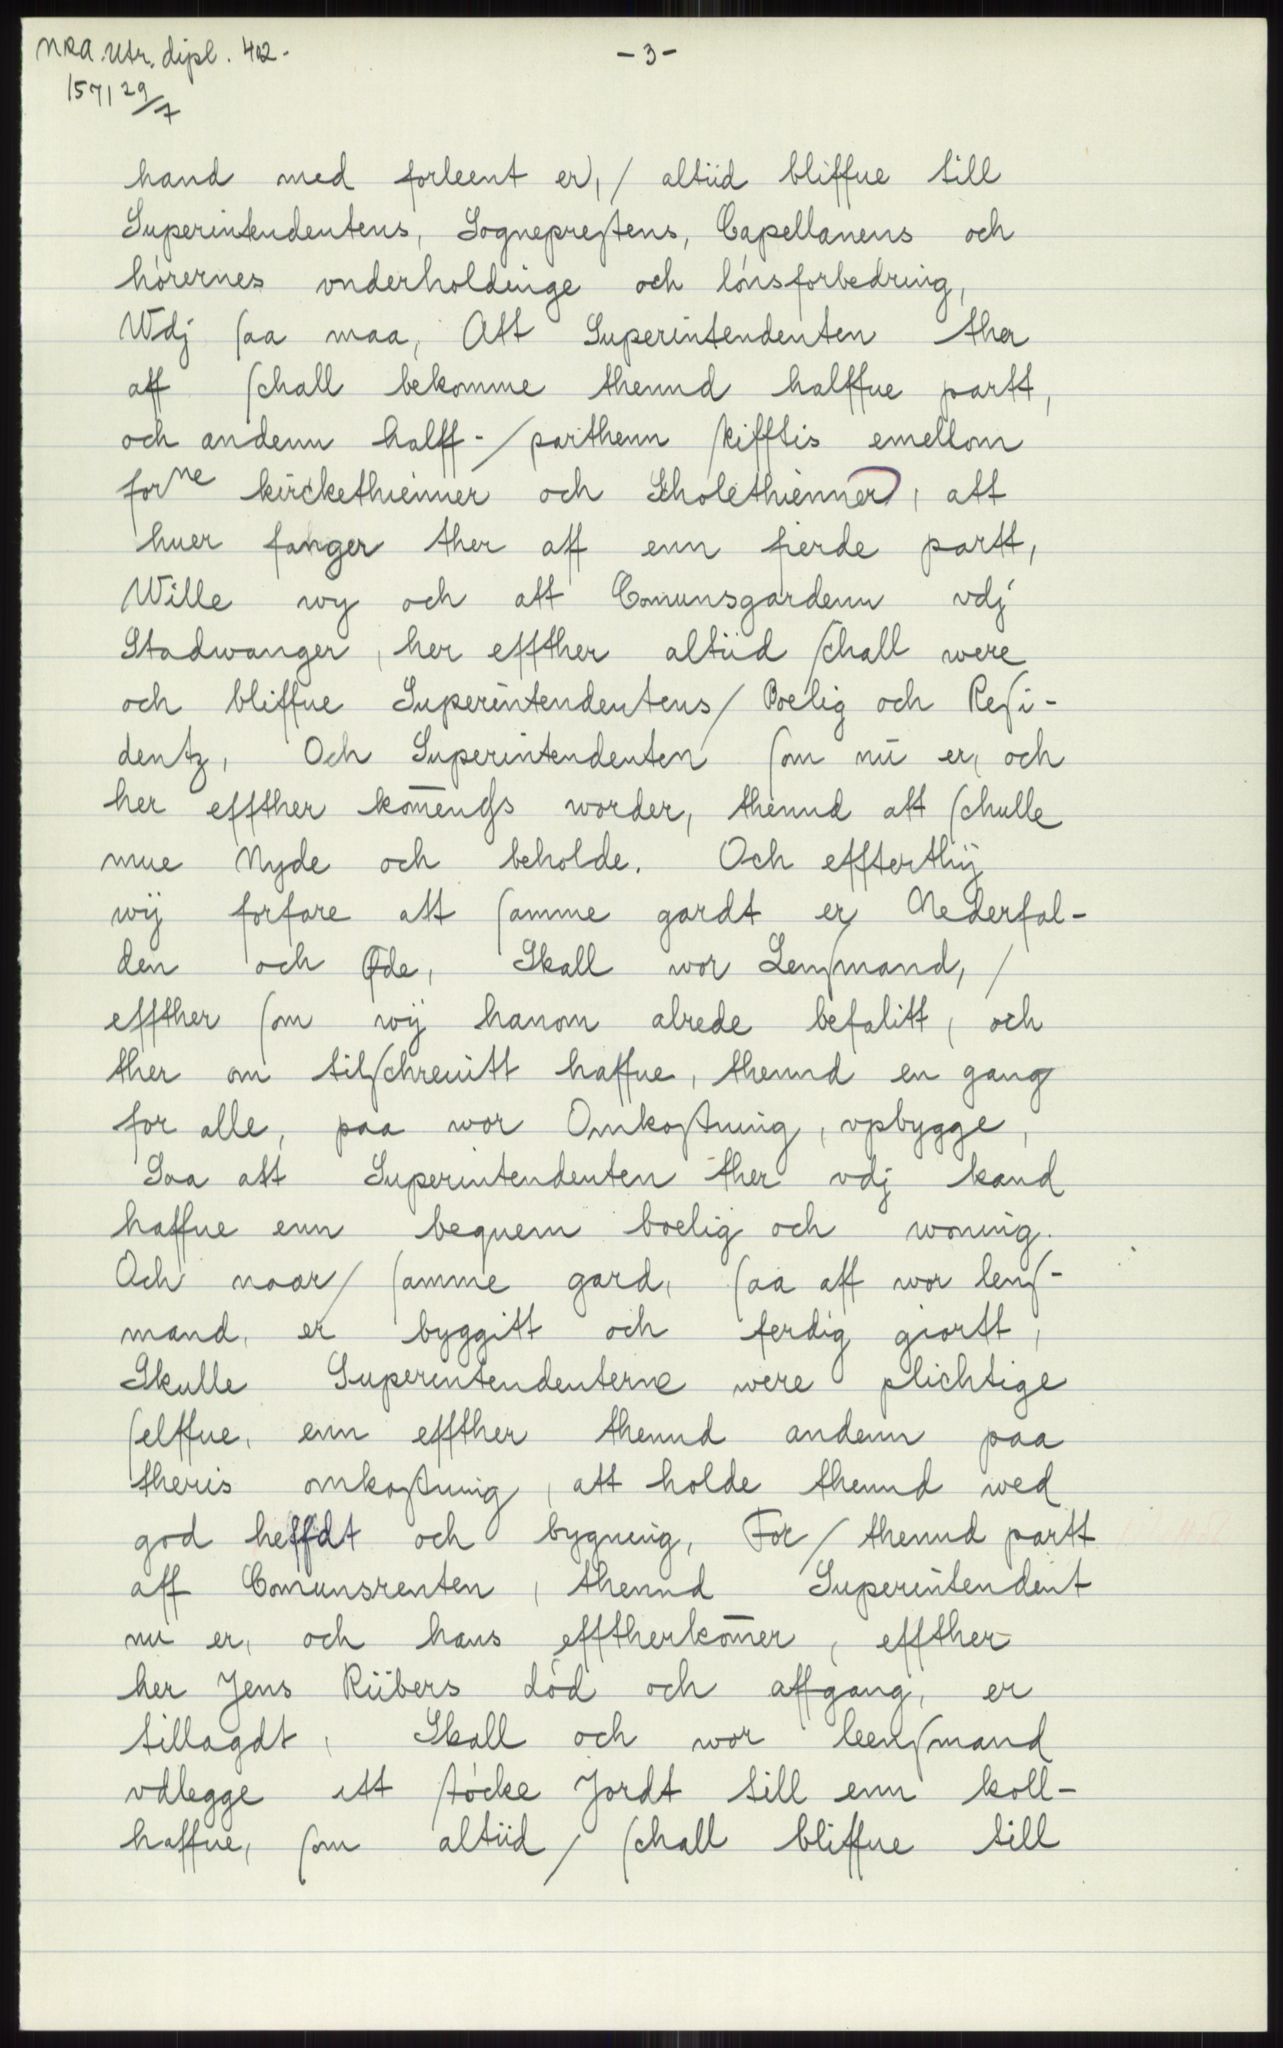 NRA. Utr. dipl. 402.
- 3 -
1571 29/7
hand med forleent er, / altiid bliffue till
Superintendentens, Sogneprestens, Capellanens och
hórernes vnderholdinge och lónsforbedring,
Wdj saa maa, Att Superintendenten ther
aff schall bekomme thennd halffue partt,
och andenn halff-/parthenn skifftis emellom
forne kirckethienner och Scholethienner, att
huer fanger ther aff enn fierde partt,
Wille wy och att Comunsgardenn vdj
Stadwanger, her effther altiid schall were
och bliffue Superintendentens / Boelig och Resi-
dentz, Och Superintendenten som nu er, och
her effther kom̄ends worder, thennd att schulle
mue Nyde och beholde. Och effterthij
wij forfare att samme gardt er Nederfal-
den och Øde, Skall wor Lensmand, /
effther som wij hanom alrede befalitt, och
ther om tilschreuitt haffue, thennd en gang
for alle, paa wor Omkostning, vpbygge,
Saa att Superintendenten ther vdj kand
haffue enn bequem boelig och woning.
Och naar / samme gard, saa aff wor lens-
mand, er byggitt och ferdig giortt,
Skulle Superintendenterne were plichtige
selffue, enn effther thennd andenn paa
theris omkostning, att holde thennd wed
god heffdt och bygning, For / thennd partt
aff Comunsrenten, thennd Superintendent
nu er, och hans efftherkom̄er, effther
her Jens Riibers dód och affgang, er
tillagdt, Skall och wor leensmand
vdlegge ett stócke Jordt till enn koll-
haffue, som altiid / schall bliffue till